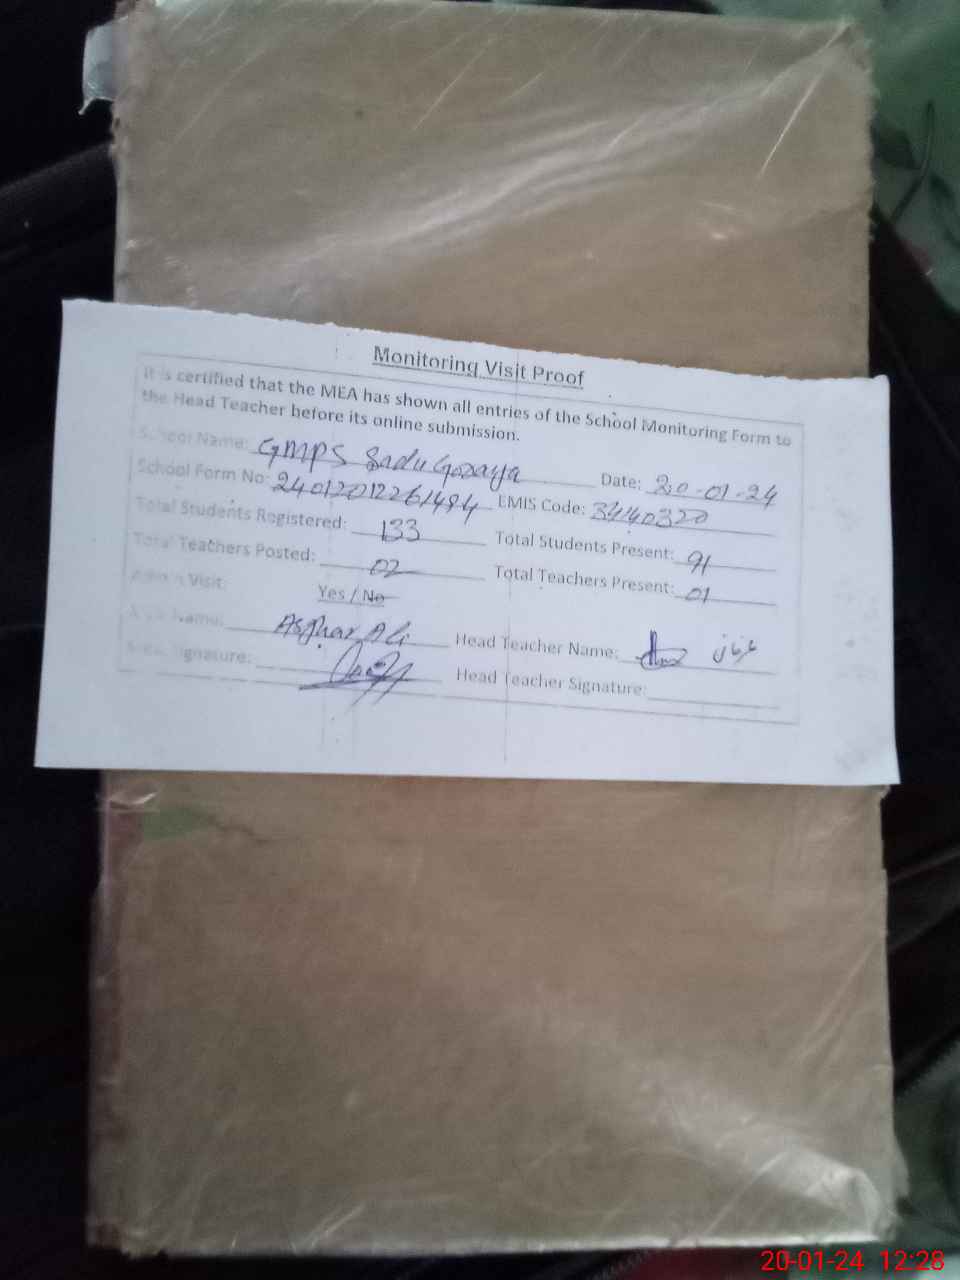 Monitoring Visit Proof
It is certified that the MEA has shown all entries of the School Monitoring Form to
the Head Teacher before its online submission.
School Name: GMPS Sadu Goraya Date: 20-01-24
School Form No: 24012012261494 EMIS Code: 34140320
Total Students Registered: 133 Total Students Present: 91
Total Teachers Posted: 02 Total Teachers Present: 01
Visit: Yes / No
Name: Asghar Ali Head Teacher Name:
Signature: Head Teacher Signature:
20-01-24 12:28